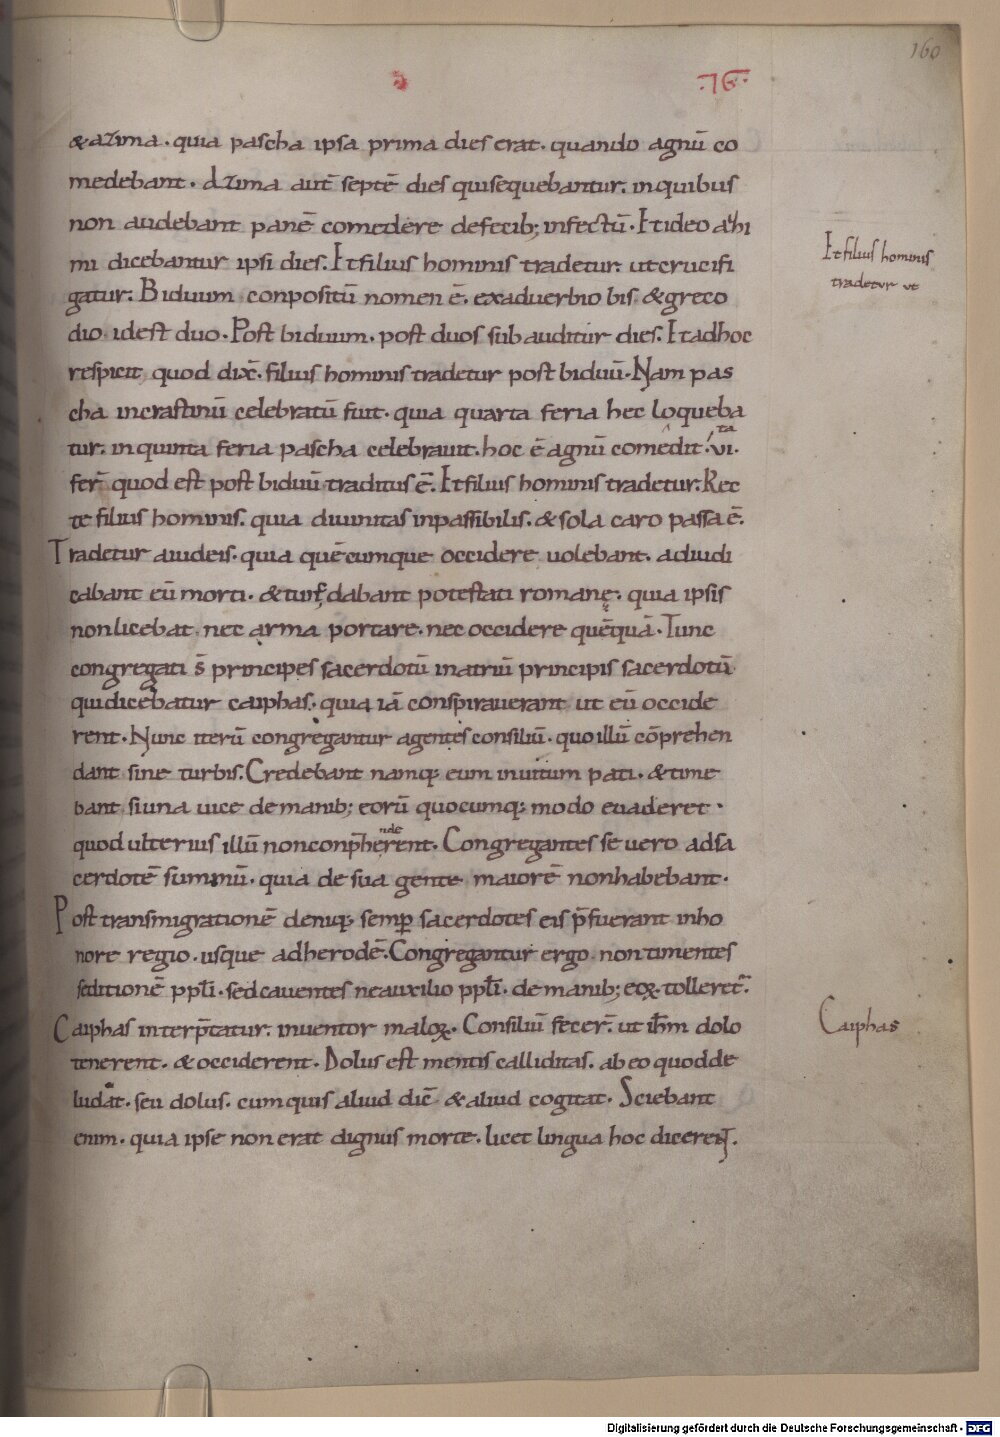 160
·76·
& azima · quia pascha ipsa prima dies erat · quando agnū co
medebant · Azima aut̄ septē dies qui sequebantur · in quibus
non audebant panē comedere de fecib; infectū · Et ideo azhi
mi dicebantur ipsi dies. Et filius hominis tradetur · ut crucifi
gatur. Biduum conpositū nomen ē · ex aduerbio bis · & greco
dio · id est duo · Post biduum · post duos sub auditur dies. Et ad hoc
respicit quod dix̄ · filius hominis tradetur post biduū · Nam pas
cha in crastinū celebratū fuit · quia quarta feria hec loqueba
tur · in quinta feria pascha celebrauit · hoc ē agnū comedit · vi ta
fer̄ quod est post biduū traditus ē. Et filius hominis tradetur. Rec
te filius hominis · quia diuinitas inpassibilis · & sola caro passa ē.
Tradetur a iudeis · quia quēcumque occidere uolebant · adiudi
cabant eū morti · & turt dabant potestati romanę · quia ipsis
non licebat nec arma portare · nec occidere quēquā · Tunc
congregati s̄ principes sacerdotū in atriū principis sacerdotū
qui dicebatur caiphas · quia iā conspirauerant ut eū occide
rent · Nunc iterū congregantur agentes consiliū · quo illū cōprehen
dant sine turbis. Credebant namq; eum inuitum pati · & time
bant si una uice de manib; eorū quocumq; modo euaderet ·
quod ulterius illū non conp̄herent nde · Congregantes se uero ad sa
cerdotē summū · quia de sua gente maiorē non habebant ·
Post transmigrationē deniq; semp̄ sacerdotes eis p̄fuerant in ho
nore regio · usque ad herodē. Congregantur ergo non timentes
seditionē ppl̄i · sed cauentes ne auxilio ppl̄i · de manib; eoꝝ tolleret̄.
Caiphas interp̄tatur · inuentor maloꝝ · Consiliū fecer̄ · ut ih̄m dolo
tenerent · & occiderent · Dolus est mentis calliditas · ab eo quod de
ludat · seu dolus · cum quis aliud dic̄ & aliud cogitat · Sciebant
enim · quia ipse non erat dignus morte · licet lingua hoc dicerent.
Et filius hominis
tradetur ut
Caiphas
Digitalisierung gefördert durch die Deutsche Forschungsgemeinschaft - DFG